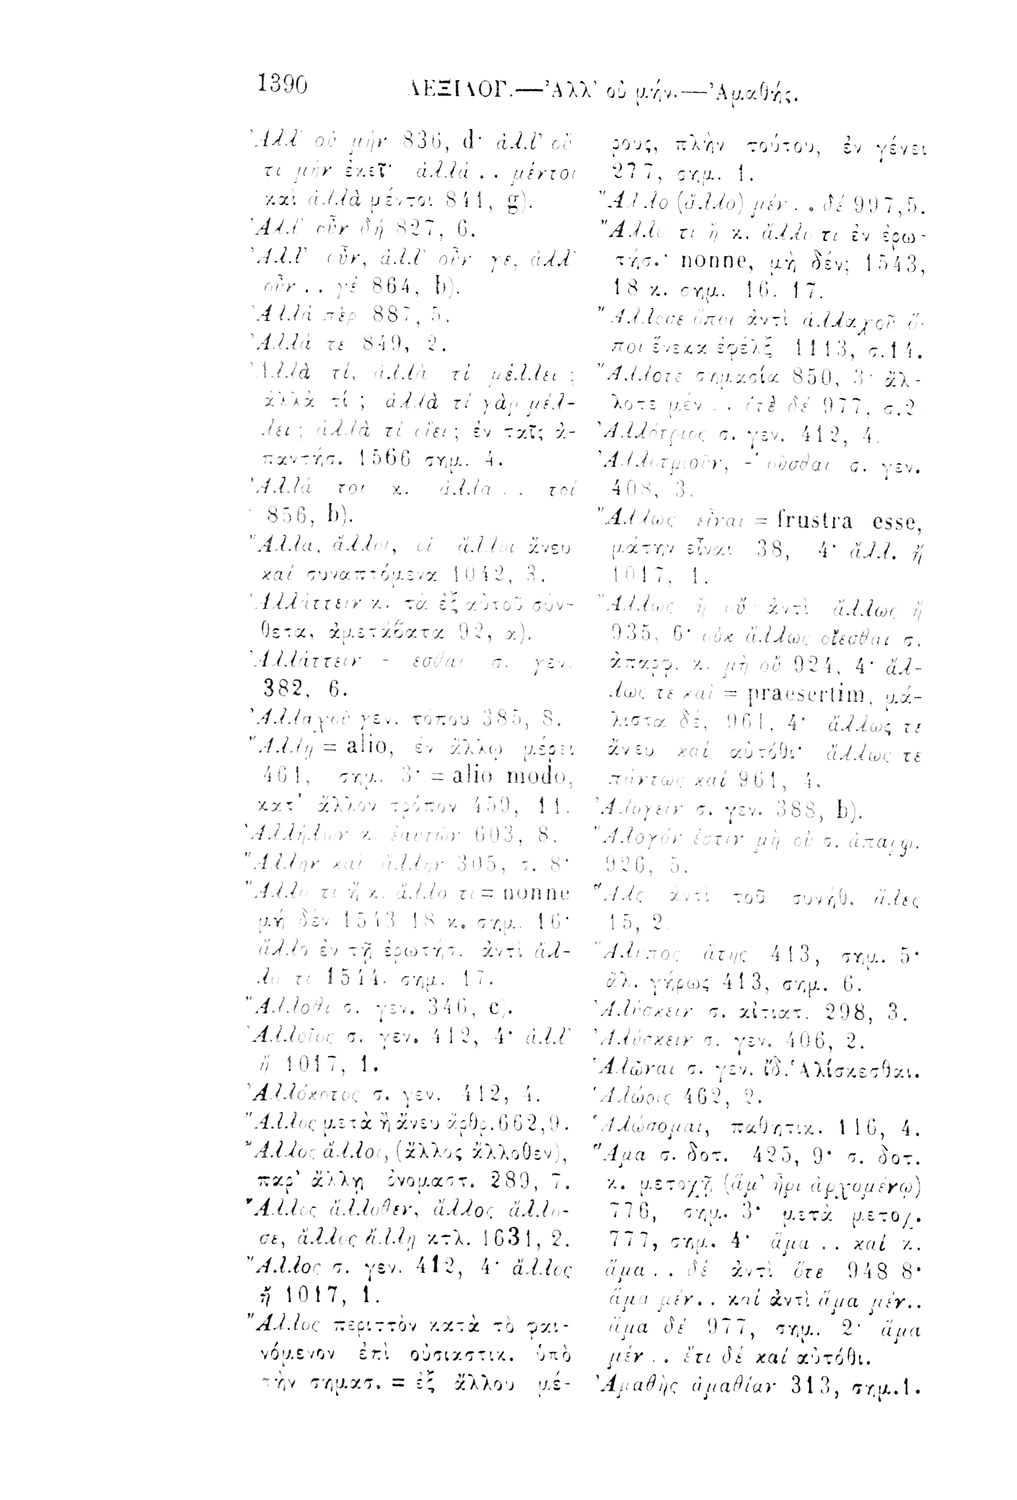 1390 ΛΕΞΙΛΟΓ.—Ἀλλ' οὐ μήν.—Ἀμαθής.
Ἀλλ' οὐ μὴν 836, d· ἀλλ' οὔ
τι μὴν ἐκεῖ· ἀλλὰ .. μέντοι
καὶ ἀλλὰ μέντοι 841, g).
Ἀλλ' οὖν δή 827, 6.
Ἀλλ' οὖν, ἀλλ' οὖν γε, ἀλλ'
οὖν .. γέ 864, b).
Ἀλλά περ 887, 5.
Ἀλλά τε 849, 2.
Ἀλλὰ τί, ἀλλὰ τί μέλλει ;
ἀλλὰ τί ; ἀλλὰ τί γὰρ μέλ-
λει ; ἀλλὰ τί οἴει ; ἐν ταῖς ἀ-
παντήσ. 1566 σημ. 4.
Ἀλλά τοι κ. ἀλλα .. τοί
856, b).
Ἄλλα, ἄλλοι, οἱ ἄλλοι ἄνευ
καί συναπτόμενα 1042, 3.
Ἀλλάττειν κ. τὰ ἐξ αὐτοῦ σύν-
θετα, ἀμετάβατα 92, α).
Ἀλλάττειν - εσθαι σ. γεν.
382, 6.
Ἀλλαχοῦ γεν. τόπου 385, 8.
Ἄλλῃ = alio, ἐν ἄλλῳ μέρει
461, σημ. 3· = alio modo,
κατ' ἄλλον τρόπον 459, 11.
Ἀλλήλων κ. ἑαυτῶν 603, 8.
Ἄλλην καὶ ἄλλην 305, σ. 8·
Ἄλλο τι ἢ κ. ἄλλο τι = nonne
μὴ δὲν 1543 18 κ. σημ. 16·
ἄλλο ἐν τῇ ἐρωτήσ. ἀντὶ ἄλ-
λο τι 1544. σημ. 17.
Ἄλλοθι σ. γεν. 346, c).
Ἀλλοῖος σ. γεν. 412, 4· ἀλλ'
ἢ 1017, 1.
Ἀλλόκοτος σ. γεν. 412, 4.
Ἄλλος μετὰ ἢ ἄνευ ἄρθρ. 662,9.
Ἄλλος ἄλλοι, (ἄλλος ἄλλοθεν),
παρ' ἄλλη ὀνομαστ. 289, 7.
Ἄλλος ἄλλοθεν, ἄλλος ἄλλο-
σε, ἄλλος ἄλλῃ κτλ. 1631, 2.
Ἄλλος σ. γεν. 412, 4· ἄλλος
ἤ 1017, 1.
Ἄλλος περιττὸν κατὰ τὸ φαι-
νόμενον ἐπὶ οὐσιαστικ. ὑπὸ
τὴν σημασ. = ἐξ ἄλλου μέ-
ρους, πλὴν τούτου, ἐν γένει
277, σημ. 1.
Ἄλλο (ἄλλο) μέν .. δέ 997,5.
Ἄλλο τι ἢ κ. ἄλλο τι ἐν ἐρω-
τήσ.· nonne, μὴ δέν; 1543,
18 κ. σημ. 16. 17.
Ἄλλοσε ὅποι ἀντὶ ἀλλαχοῦ ὅ-
ποι ἕνεκα ἐφέλξ 1113, σ.14.
Ἄλλοτε σημασία 850, 3· ἄλ-
λοτε μὲν .. ὁτὲ δέ 977, σ.2
Ἀλλότριος σ. γεν. 412, 4.
Ἀλλοτριοῦν, -οῦσθαι σ. γεν.
408, 3.
Ἄλλως εἶναι = frustra esse,
μάτην εἶναι 38, 4· ἄλλ. ἤ
1017, 1.
Ἄλλως ἢ οὔ ἀντὶ ἄλλως ἤ
935, 6· οὐκ ἄλλως οἴεσθαι σ.
ἀπαρφ. κ. μὴ οὔ 924, 4· ἄλ-
λως τε καί = praesertim, μά-
λιστα δέ, 961, 4· ἄλλως τε
ἄνευ καί αὐτόθι· ἄλλως τε
πάντως καί 961, 4.
Ἀλογεῖν σ. γεν. 388, b).
Ἄλογόν ἐστιν μὴ οὐ σ. ἀπαρφ.
926, 5.
Ἅλς ἀντὶ τοῦ συνήθ. ἅλες
15, 2
Ἄλυπος ἄτης 413, σημ. 5·
ἄλ. γήρως 413, σημ. 6.
Ἀλύσκειν σ. αἰτιατ. 298, 3.
Ἀλύσκειν σ. γεν. 406, 2.
Ἁλῶναι σ. γεν. ἴδ. Ἁλίσκεσθαι.
Ἁλώοις 462, 2.
Ἁλώσομαι, παθητικ. 116, 4.
Ἅμα σ. δοτ. 425, 9· σ. δοτ.
κ. μετοχῇ (ἅμ' ἦρι ἀρχομένῳ)
776, σημ. 3· μετὰ μετοχ.
777, σημ. 4· ἅμα .. καί κ.
ἅμα .. δέ ἀντὶ ὅτε 948 8·
ἅμα μέν .. καί ἀντὶ ἅμα μέν..
ἅμα δέ 977, σημ. 2· ἅμα
μέν .. ἔτι δέ καί αὐτόθι.
Ἀμαθὴς ἀμαθίαν 313, σημ.1.